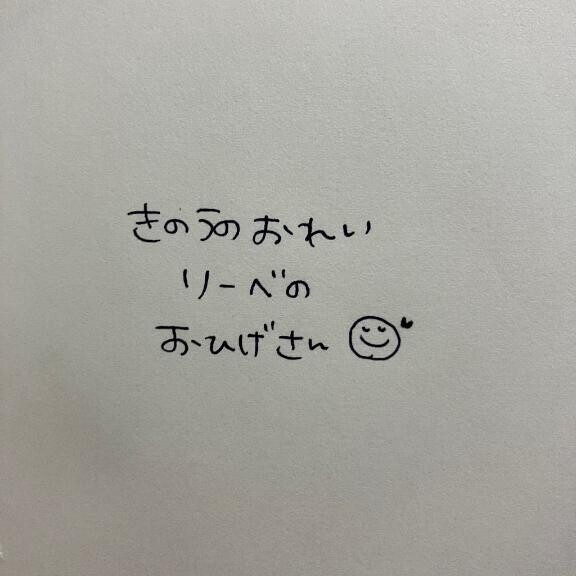 きのうのおれい
リーべの
おひげさん